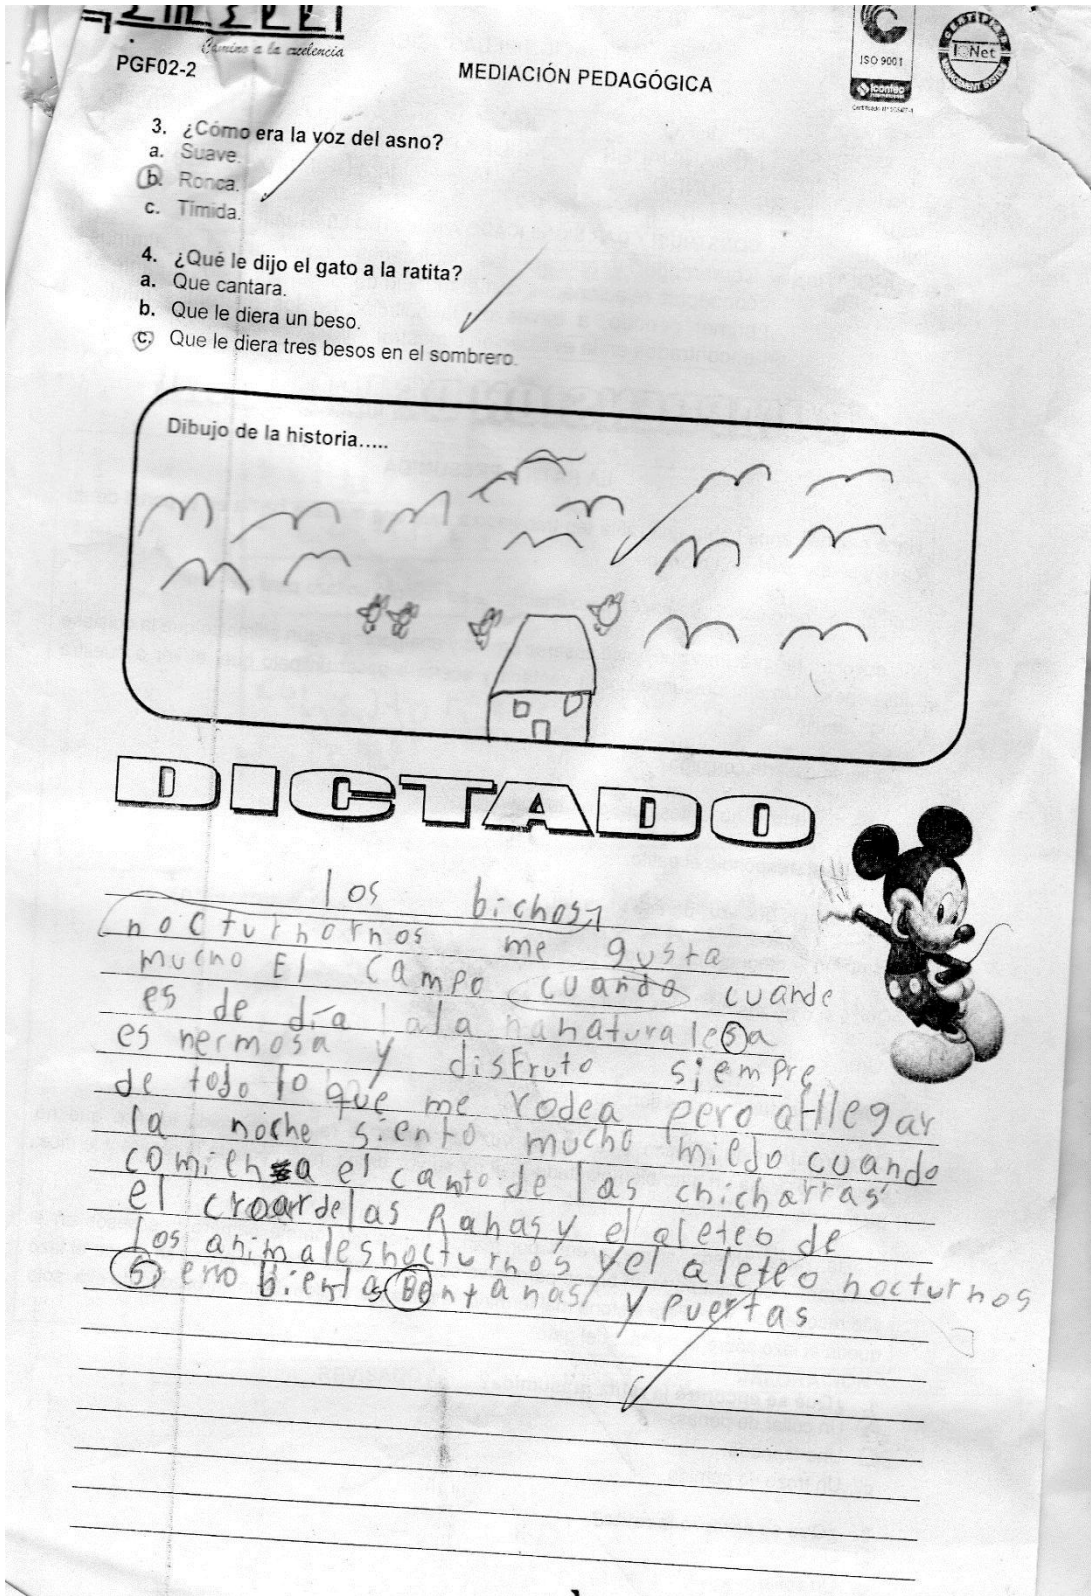 Camino a la excelencia
PGF02-2
MEDIACIÓN PEDAGÓGICA
ISO 9001
Icontec
CERTIFIED
IQNet
MANAGEMENT SYSTEM
3. ¿Cómo era la voz del asno?
a. Suave.
b. Ronca.
c. Tímida.
4. ¿Qué le dijo el gato a la ratita?
a. Que cantara.
b. Que le diera un beso.
c. Que le diera tres besos en el sombrero.
Dibujo de la historia.....
DICTADO
los bichos
nocturnornos me gusta
mucho El campo cuando cuande
es de día lala nanaturalesa
es hermosa y disfruto siempre
de todo lo que me rodea pero al llegar
la noche siento mucho miedo cuando
el canto de las chicharras
el croar de las Ranas y el aleteo de
los animales nocturnos y el aleteo nocturnos
bien las bentanas y puertas